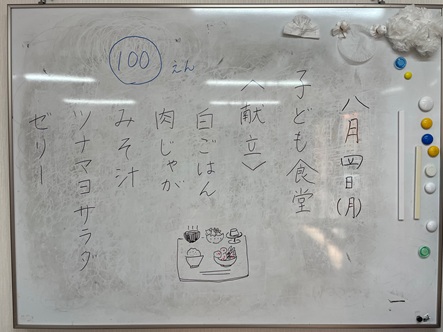 八月四日(月)
子ども食堂
〈献立〉
白ごはん
肉じゃが
みそ汁
ツナマヨサラダ
ゼリー
100えん